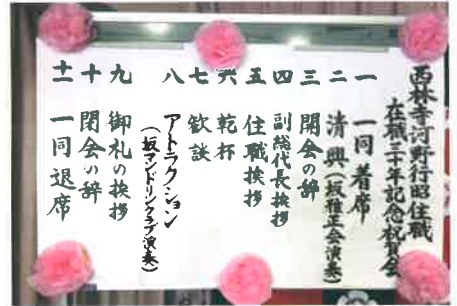 西林寺河野行昭住職
在職三十年記念祝賀会
一 一同着席
二 清興(坂雅正会演奏)
三 開会の辞
四 副総代長挨拶
五 住職挨拶
六 乾杯
七 歓談
八 アトラクション
(坂マンドリンクラブ演奏)
九 御礼の挨拶
十 閉会の辞
十一 一同退席